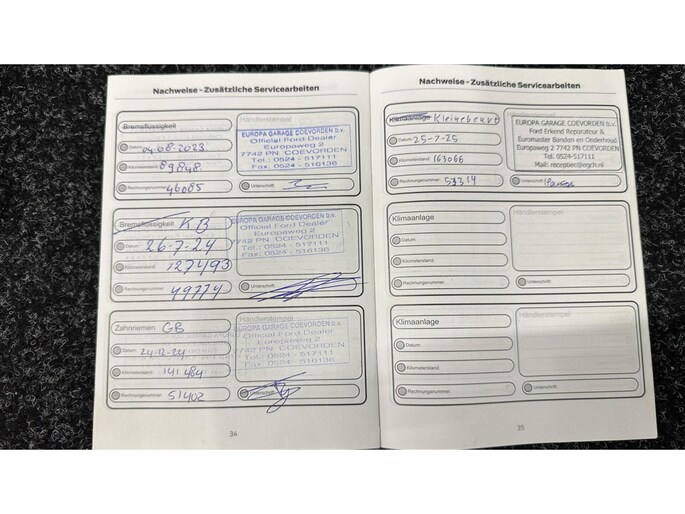 Nachweise - Zusätzliche Servicearbeiten
Bremsflüssigkeit
Händlerstempel
Datum 04-08-2023
Kilometerstand 89848
Rechnungsnummer 46085
EUROPA GARAGE COEVORDEN b.v.
Official Ford Dealer
Europaweg 2
7742 PN COEVORDEN
Tel.: 0524 - 517111
Fax: 0524 - 516136
Unterschrift
Bremsflüssigkeit KB
Händlerstempel
Datum 26-7-24
Kilometerstand 127493
Rechnungsnummer 49774
EUROPA GARAGE COEVORDEN b.v.
Official Ford Dealer
Europaweg 2
7742 PN COEVORDEN
Tel.: 0524 - 517111
Fax: 0524 - 516136
Unterschrift
Zahnriemen GB
Händlerstempel
Datum 24-12-24
Kilometerstand 141484
Rechnungsnummer 51402
EUROPA GARAGE COEVORDEN b.v.
Official Ford Dealer
Europaweg 2
7742 PN COEVORDEN
Tel.: 0524 - 517111
Fax: 0524 - 516136
Unterschrift
34
Nachweise - Zusätzliche Servicearbeiten
Klimaanlage Kleinebeurt
Händlerstempel
Datum 25-7-25
Kilometerstand 163066
Rechnungsnummer 53314
EUROPA GARAGE COEVORDEN b.v.
Ford Erkend Reparateur &
Euromaster Banden en Onderhoud
Europaweg 2 7742 PN COEVORDEN
Tel. 0524-517111
Unterschrift
Klimaanlage
Händlerstempel
Datum
Kilometerstand
Rechnungsnummer
Unterschrift
Klimaanlage
Händlerstempel
Datum
Kilometerstand
Rechnungsnummer
Unterschrift
35